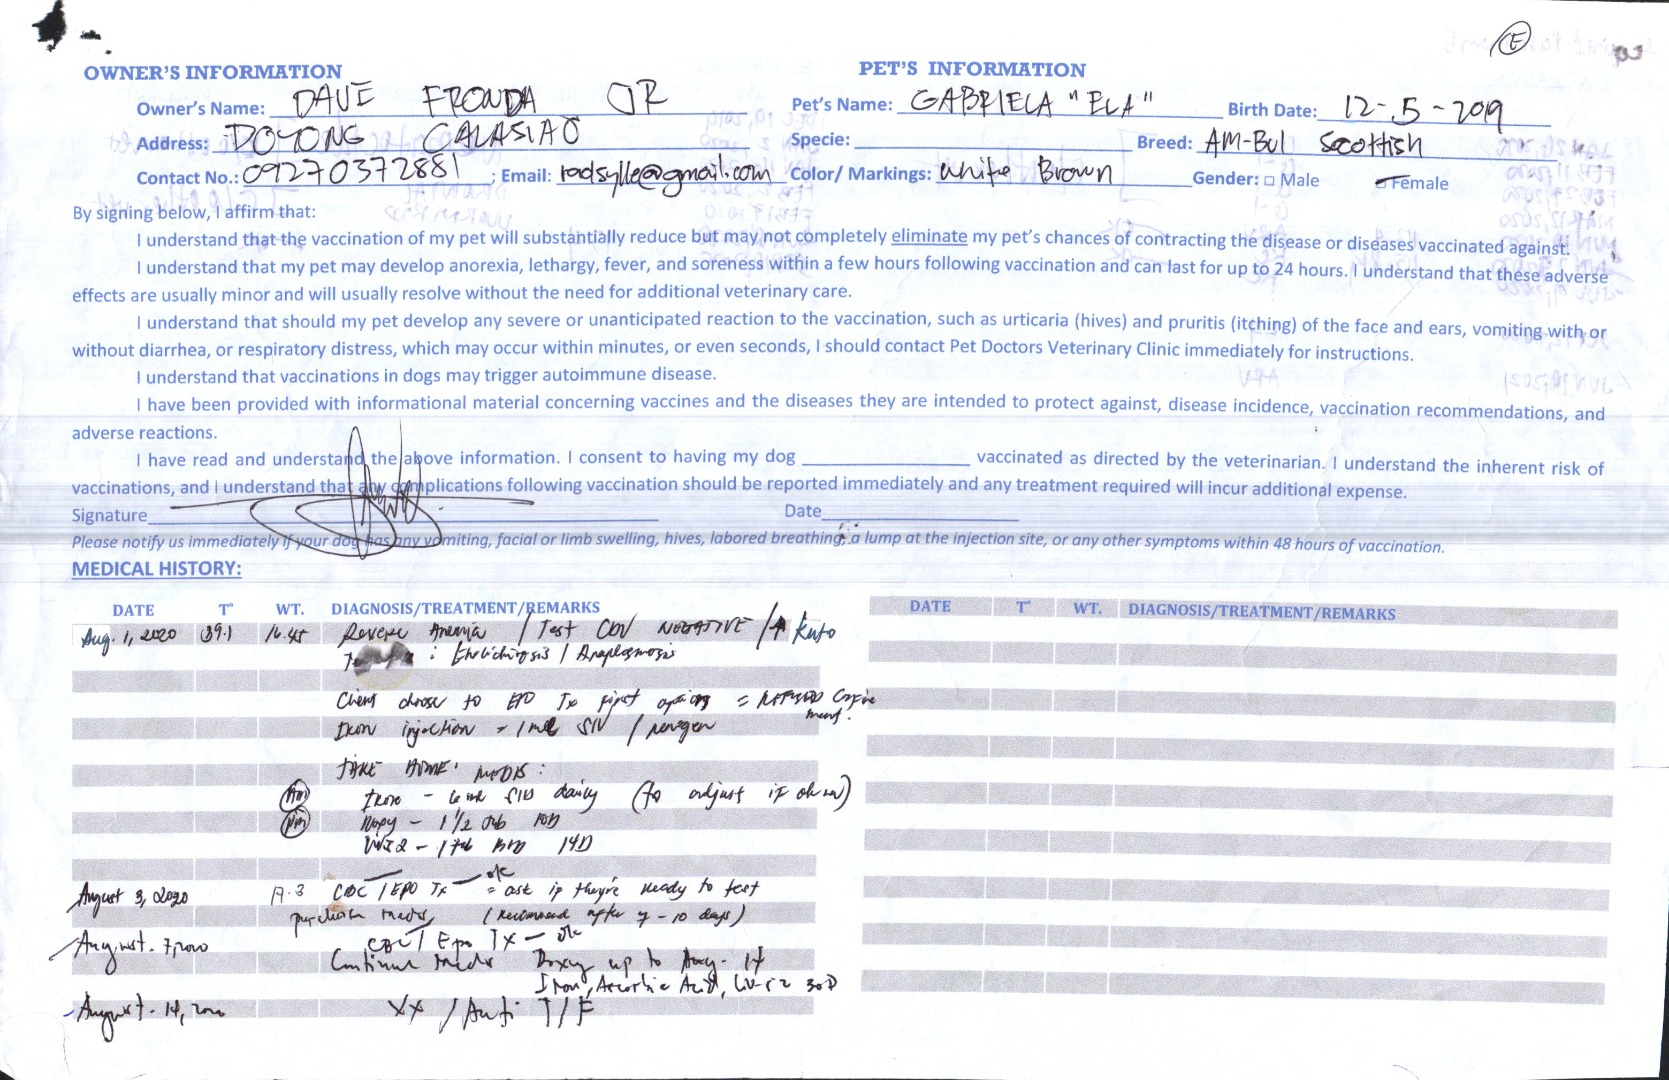 E
OWNER'S INFORMATION
PET'S INFORMATION
Owner's Name: DAVE FRONDA JR
Pet's Name: GABRIELA "ELA"
Birth Date: 12-5-2019
Address: DOYONG CALASIAO
Specie:
Breed: AM-Bul Scottish
Contact No.: 09270372881 ; Email: radsylle@gmail.com
Color/ Markings: White Brown
Gender: □ Male □ Female
By signing below, I affirm that:
I understand that the vaccination of my pet will substantially reduce but may not completely eliminate my pet's chances of contracting the disease or diseases vaccinated against.
I understand that my pet may develop anorexia, lethargy, fever, and soreness within a few hours following vaccination and can last for up to 24 hours. I understand that these adverse
effects are usually minor and will usually resolve without the need for additional veterinary care.
I understand that should my pet develop any severe or unanticipated reaction to the vaccination, such as urticaria (hives) and pruritis (itching) of the face and ears, vomiting with or
without diarrhea, or respiratory distress, which may occur within minutes, or even seconds, I should contact Pet Doctors Veterinary Clinic immediately for instructions.
I understand that vaccinations in dogs may trigger autoimmune disease.
I have been provided with informational material concerning vaccines and the diseases they are intended to protect against, disease incidence, vaccination recommendations, and
adverse reactions.
I have read and understand the above information. I consent to having my dog ____ vaccinated as directed by the veterinarian. I understand the inherent risk of
vaccinations, and I understand that any complications following vaccination should be reported immediately and any treatment required will incur additional expense.
Signature
Date
Please notify us immediately if your dog has any vomiting, facial or limb swelling, hives, labored breathing, a lump at the injection site, or any other symptoms within 48 hours of vaccination.
MEDICAL HISTORY:
DATE T° WT. DIAGNOSIS/TREATMENT/REMARKS
DATE T° WT. DIAGNOSIS/TREATMENT/REMARKS
Aug. 1, 2020 39.1 16.45 Severe Anemia / Test CDV NEGATIVE / ↑ kuto
: Ehrlichiosis / Anaplasmosis
Client choose to EPO Tx first = REFUSED Confine
ment.
Iron injection - 1 ml SIV
TAKE HOME MEDS:
AM Iron - 6 ml SID daily (to adjust if
PM 1 1/2 tab 10D
1 tab BID 14D
August 3, 2020 17.3 CBC / EPO Tx - ok = ask if they're ready to test
purchase meds (recommend after 7-10 days)
August. 7, 2020 CBC / Epo Tx - ok
Continue meds Doxy up to Aug. 14
Iron, Ascorbic Acid, 30D
August. 14, 2020 Vx / Anti T/F